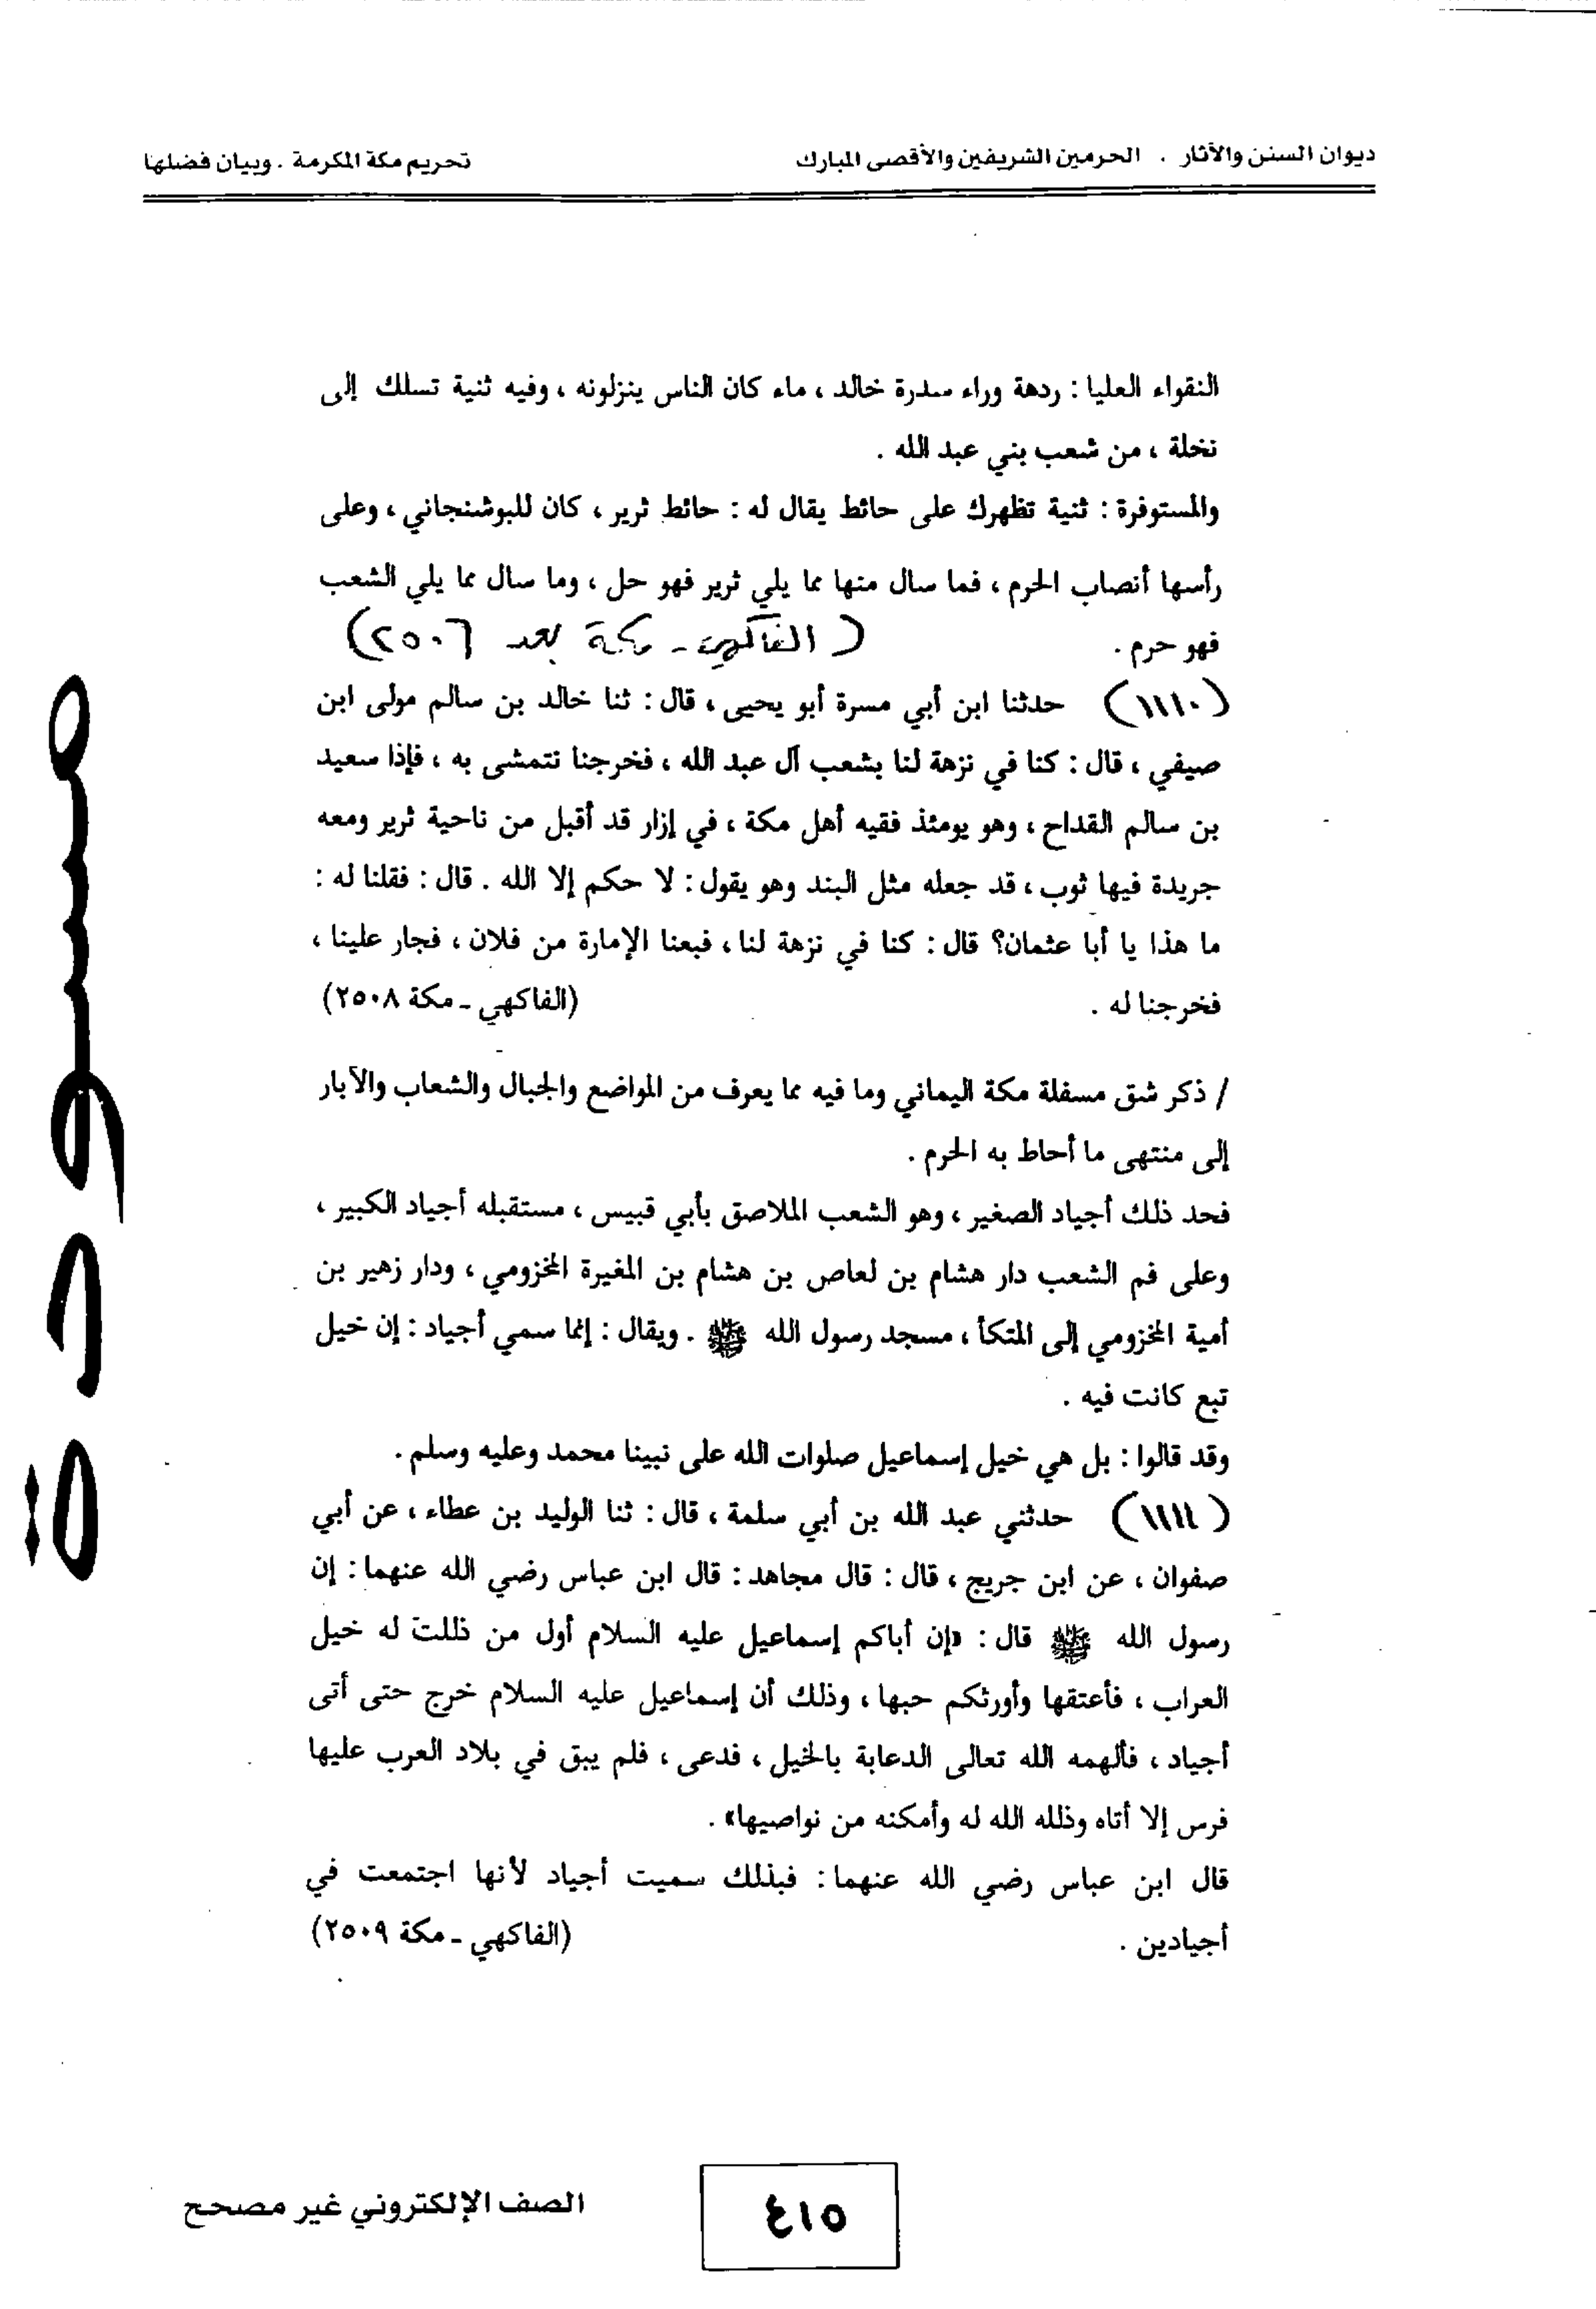 ديوان السنن والآثار . الحرمين الشريفين والأقصى المبارك
تحريم مكة المكرمة . وبيان فضلها
النقواء العليا : ردهة وراء سدرة خالد ، ماء كان الناس ينزلونه ، وفيه ثنية تسلك إلى
نخلة ، من شعب بني عبد الله .
والمستوفرة : ثنية تظهرك على حائط يقال له : حائط ثرير ، كان للبوشنجاني ، وعلى
رأسها أنصاب الحرم ، فما سال منها مما يلي ثرير فهو حل ، وما سال مما يلي الشعب
فهو حرم . ( الفاكهي - مكة بعد ٢٥٠٦)
(١١١٠) حدثنا ابن أبي مسرة أبو يحيى ، قال : ثنا خالد بن سالم مولى ابن
صيفي ، قال : كنا في نزهة لنا بشعب آل عبد الله ، فخرجنا نتمشى به ، فإذا سعيد
بن سالم القداح ، وهو يومئذ فقيه أهل مكة ، في إزار قد أقبل من ناحية ثرير ومعه
جريدة فيها ثوب ، قد جعله مثل البند وهو يقول : لا حكم إلا الله . قال : فقلنا له :
ما هذا يا أبا عثمان؟ قال : كنا في نزهة لنا ، فبعنا الإمارة من فلان ، فجار علينا ،
فخرجنا له . (الفاكهي - مكة ٢٥٠٨)
/ ذكر شق مسفلة مكة اليماني وما فيه مما يعرف من المواضع والجبال والشعاب والآبار
إلى منتهى ما أحاط به الحرم .
فحد ذلك أجياد الصغير ، وهو الشعب الملاصق بأبي قبيس ، مستقبله أجياد الكبير ،
وعلى فم الشعب دار هشام بن لعاص بن هشام بن المغيرة المخزومي ، ودار زهير بن
أمية المخزومي إلى المتكأ ، مسجد رسول الله ﷺ . ويقال : إنما سمي أجياد : إن خيل
تبع كانت فيه .
وقد قالوا : بل هي خيل إسماعيل صلوات الله على نبينا محمد وعليه وسلم .
(١١١١) حدثني عبد الله بن أبي سلمة ، قال : ثنا الوليد بن عطاء ، عن أبي
صفوان ، عن ابن جريج ، قال : قال مجاهد : قال ابن عباس رضي الله عنهما : إن
رسول الله ﷺ قال : «إن أباكم إسماعيل عليه السلام أول من ذللت له خيل
العراب ، فأعتقها وأورثكم حبها ، وذلك أن إسماعيل عليه السلام خرج حتى أتى
أجياد ، فألهمه الله تعالى الدعابة بالخيل ، فدعى ، فلم يبق في بلاد العرب عليها
فرس إلا أتاه وذلله الله له وأمكنه من نواصيها» .
قال ابن عباس رضي الله عنهما : فبذلك سميت أجياد لأنها اجتمعت في
أجيادين . (الفاكهي - مكة ٢٥٠٩)
مسودة
٤١٥
الصف الإلكتروني غير مصحح